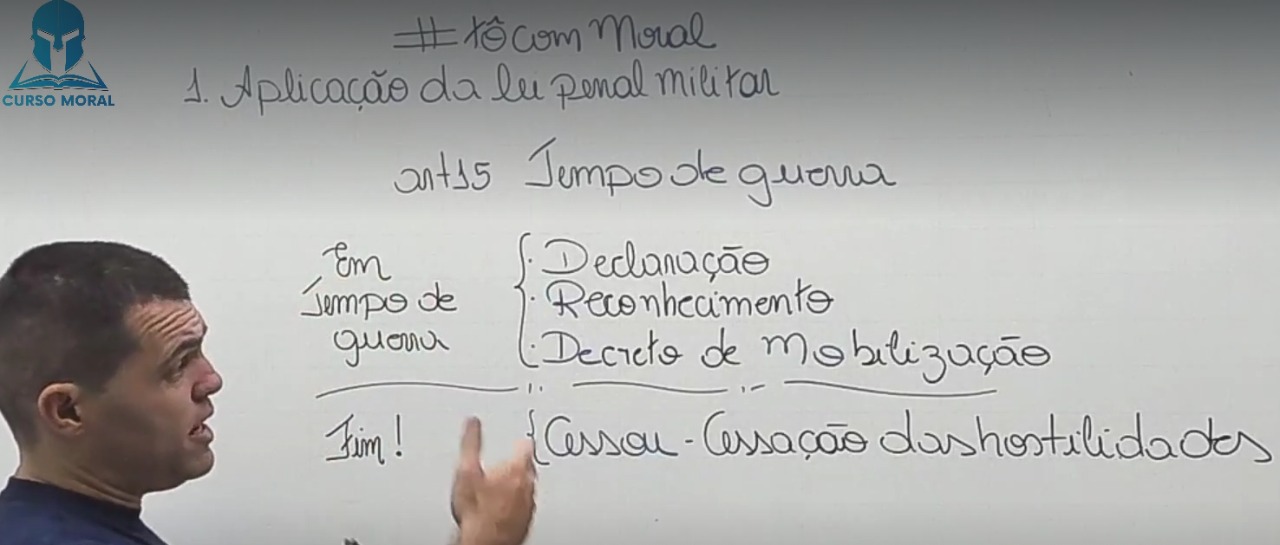 CURSO MORAL
#tôcom Moral
1. Aplicação da lei penal militar
art15 Tempo de guerra
Em
Tempo de
guerra
· Declaração
· Reconhecimento
· Decreto de Mobilização
Fim!
Cessou - Cessação das hostilidades